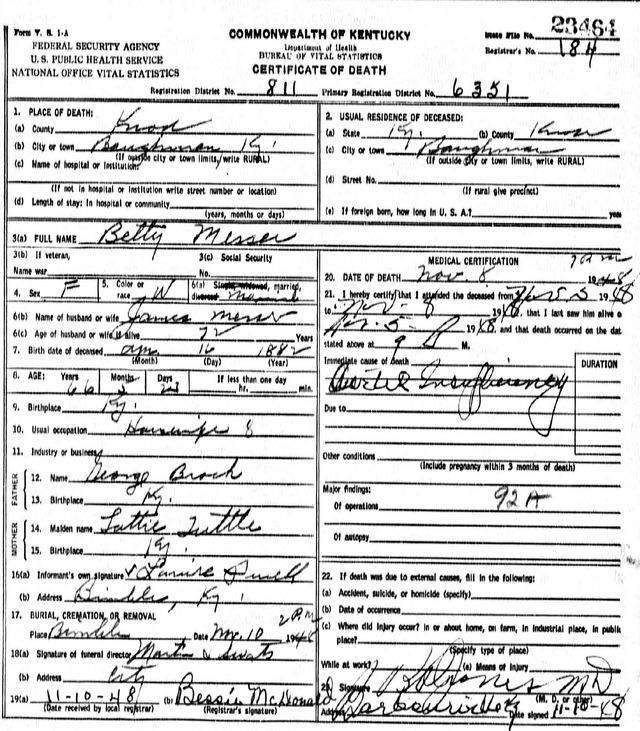 Form V. S. 1-A
FEDERAL SECURITY AGENCY
U. S. PUBLIC HEALTH SERVICE
NATIONAL OFFICE VITAL STATISTICS
COMMONWEALTH OF KENTUCKY
Department of Health
BUREAU OF VITAL STATISTICS
CERTIFICATE OF DEATH
23464
State File No.
Registrar's No. 184
Registration District No. 811 Primary Registration District No. 6351
1. PLACE OF DEATH:
(a) County Knox
(b) City or town Baughman Ky.
(If outside city or town limits, write RURAL)
(c) Name of hospital or institution:
(If not in hospital or institution write street number or location)
(d) Length of stay: In hospital or community
(years, months or days)
2. USUAL RESIDENCE OF DECEASED:
(a) State Ky. (b) County Knox
(c) City or town Baughman
(If outside city or town limits, write RURAL)
(d) Street No.
(If rural give precinct)
(e) If foreign born, how long in U. S. A.? years
3(a) FULL NAME Betty Messer
3(b) If veteran, 3(c) Social Security
Name war No.
4. Sex F 5. Color or race W 6(a) Single, widowed, married, divorced
6(b) Name of husband or wife James Messer
6(c) Age of husband or wife if alive 72 Years
7. Birth date of deceased Apr 16 1882
(Month) (Day) (Year)
8. AGE: Years Months Days If less than one day
66 hr. min.
9. Birthplace Ky.
10. Usual occupation Housewife
11. Industry or business
FATHER
12. Name George Brock
13. Birthplace Ky.
MOTHER
14. Maiden name Lattie Tuttle
15. Birthplace Ky.
16(a) Informant's own signature
(b) Address Bimble, Ky.
17. BURIAL, CREMATION, OR REMOVAL 2 P.M.
Place Bimble Date Nov. 10 1948
18(a) Signature of funeral director
(b) Address City
19(a) 11-10-48 (b) Bessie McDonald
(Date received by local registrar) (Registrar's signature)
MEDICAL CERTIFICATION
20. DATE OF DEATH Nov. 8 1948
21. I hereby certify that I attended the deceased from 1948
to Nov. 8 1948, that I last saw him alive o
1948, and that death occurred on the dat
stated above at 9 M.
Immediate cause of death DURATION
Aortic Insufficiency
Due to
Other conditions
(Include pregnancy within 3 months of death)
Major findings:
Of operations 92A
Of autopsy
22. If death was due to external causes, fill in the following:
(a) Accident, suicide, or homicide (specify)
(b) Date of occurrence
(c) Where did injury occur? in or about home, on farm, in industrial place, in public
place?
(Specify type of place)
While at work? (e) Means of Injury
23. Signature MD
(M. D. or other)
Address Barbourville Ky Date signed 11-10-48